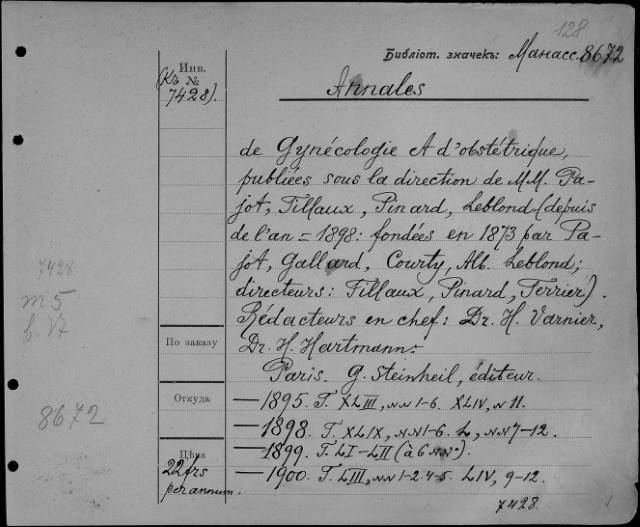 128
Библіот. значекъ: Манасс. 8672
Инв. №
(Къ 7428).
Annales
de Gynécologie et d'obstétrique,
publiées sous la direction de MM. Pa-
jot, Tillaux, Pinard, Leblond (depuis
de l'an = 1898: fondées en 1873 par Pa-
jot, Gallard, Courty, Alb. Leblond;
directeurs: Tillaux, Pinard, Terrier).
Rédacteurs en chef: Dr. H. Varnier,
Dr. H. Hartmann.
Paris. G. Steinheil, éditeur.
— 1895. T. XLIII, NN 1-6. XLIV, N 11.
— 1898. T. XLIX, NN 1-6. L, NN 7-12.
— 1899. T. LI - LII (à 6 NN).
— 1900. T. LIII, NN 1-2. 4-5. LIV, 9-12.
7428.
По заказу
Откуда
Цѣна
22 frs
per annum.
7428
8672